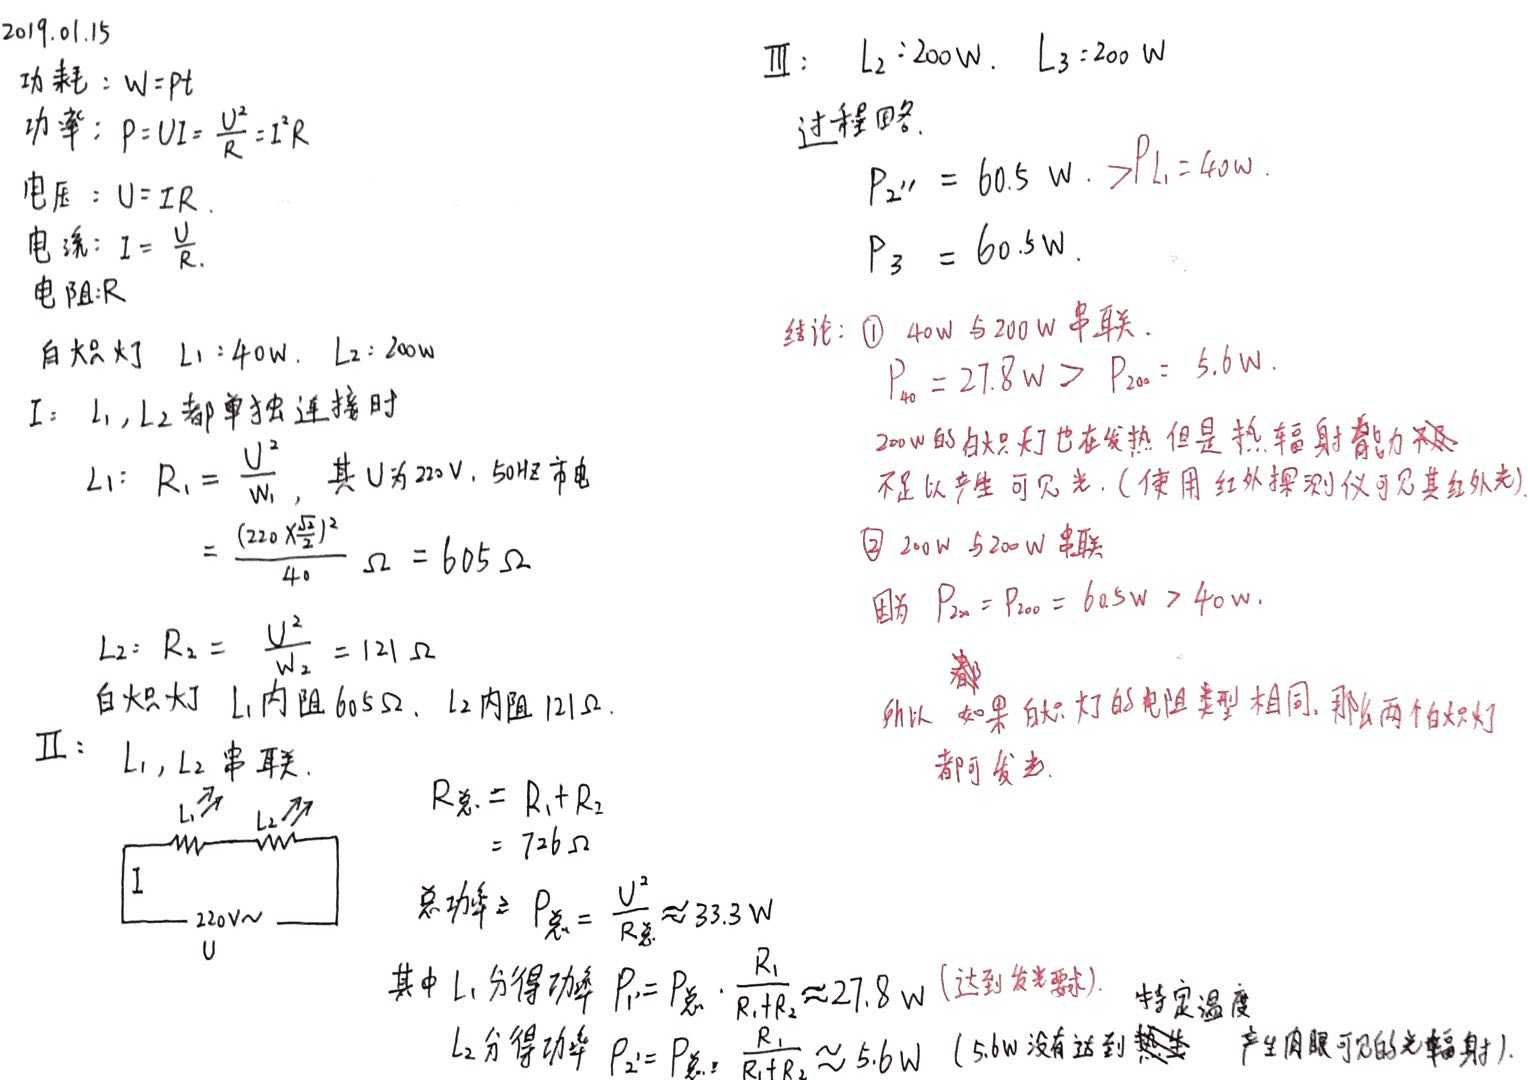 2019.01.15
功耗: W=Pt
功率: P=UI=U²/R=I²R
电压: U=IR.
电流: I=U/R.
电阻:R
白炽灯 L₁:40W. L₂:200W
I: L₁,L₂都单独连接时
L₁: R₁=U²/W₁, 其U为220V.50HZ市电
=(220×√2/2)²/40 Ω=605Ω
L₂: R₂=U²/W₂=121Ω
白炽灯 L₁内阻605Ω、L₂内阻121Ω.
II: L₁,L₂串联.
L₁ L₂
I
220V~
U
R总=R₁+R₂
=726Ω
总功率: P总=U²/R总≈33.3W
其中L₁分得功率 P₁'=P总·R₁/(R₁+R₂)≈27.8W (达到发光要求).
L₂分得功率 P₂'=P总·R₁/(R₁+R₂)≈5.6W (5.6W没有达到特定温度 产生肉眼可见的光辐射).
III: L₂:200W. L₃:200W
过程略.
P₂''=60.5W. >PL₁=40W.
P₃=60.5W.
结论: ① 40W与200W串联.
P₄₀=27.8W > P₂₀₀=5.6W.
200W的白炽灯也在发热但是热辐射能力
不足以产生可见光.(使用红外探测仪可见其红外光).
② 200W与200W串联
因为 P₂₀₀=P₂₀₀=60.5W>40W.
所以 如果白炽灯的电阻类型相同、那么两个白炽灯
都可发光.